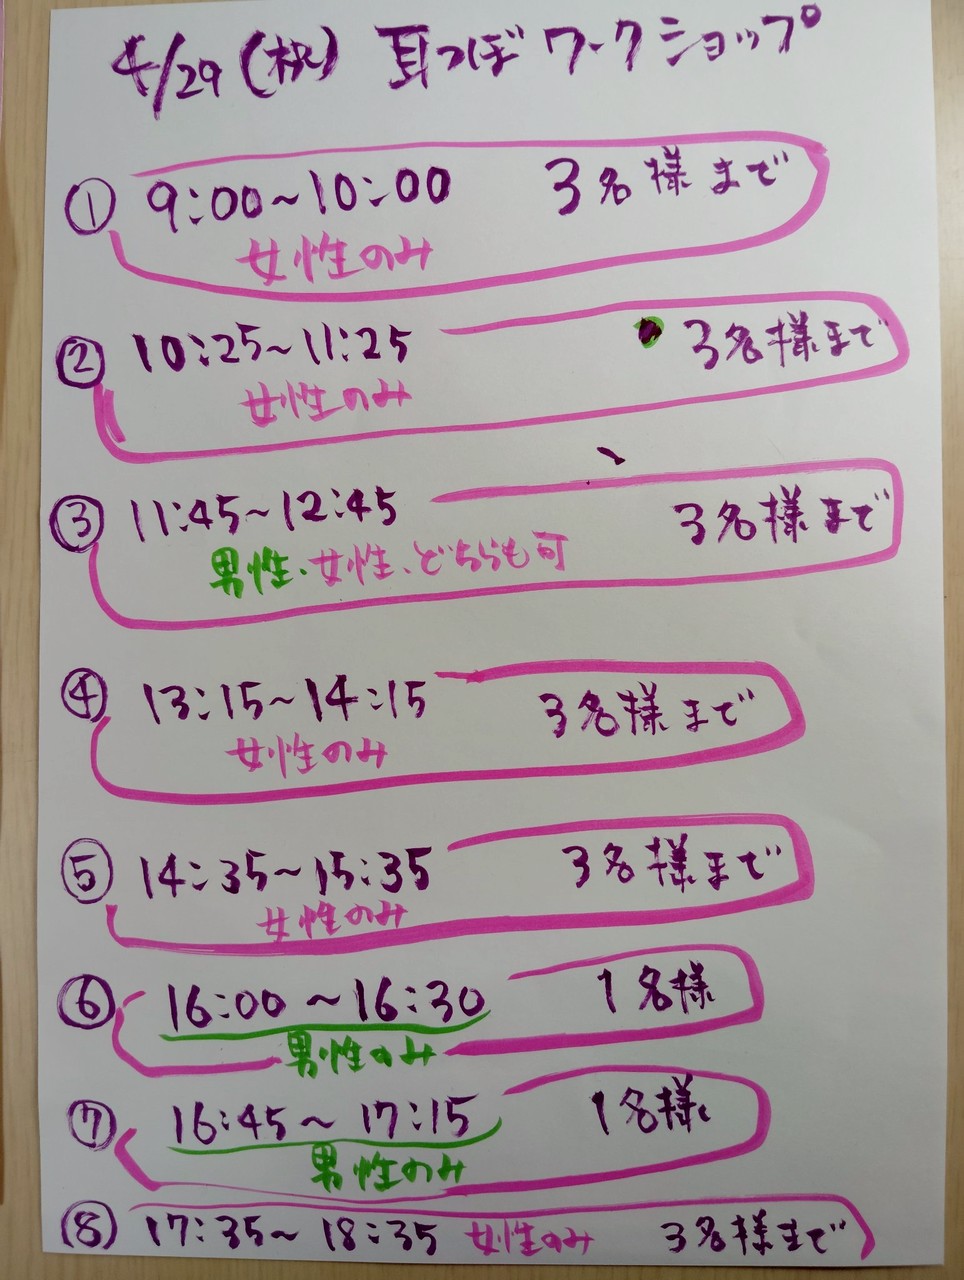 4/29(祝) 耳つぼワークショップ
① 9:00~10:00 3名様まで
女性のみ
② 10:25~11:25 3名様まで
女性のみ
③ 11:45~12:45 3名様まで
男性、女性、どちらも可
④ 13:15~14:15 3名様まで
女性のみ
⑤ 14:35~15:35 3名様まで
女性のみ
⑥ 16:00~16:30 1名様
男性のみ
⑦ 16:45~17:15 1名様
男性のみ
⑧ 17:35~18:35 女性のみ 3名様まで